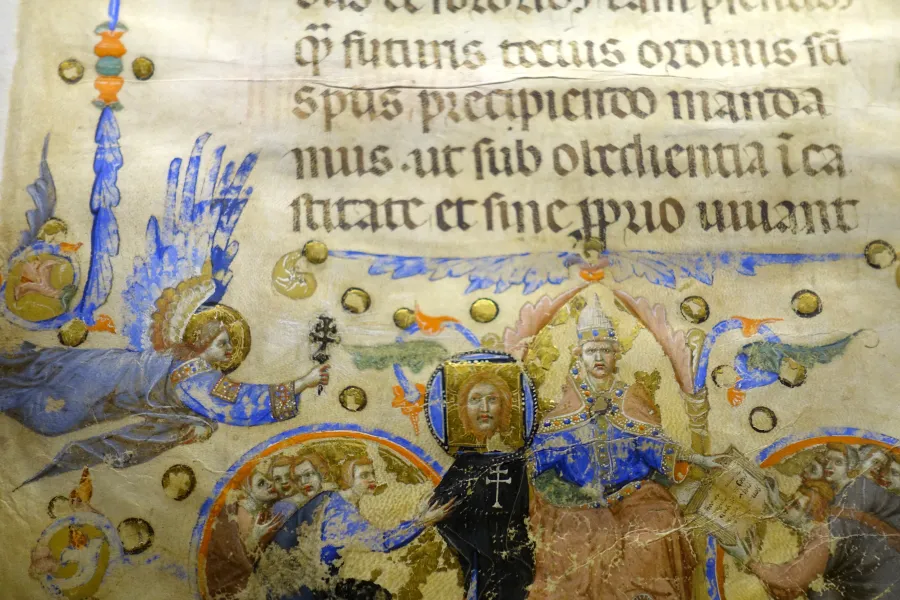 qꝫ futuris tocius ordinis sc̄i
spūs precipiendo manda
mus ut sub obedientia ī ca
stitate et sine ꝓprio uiuant